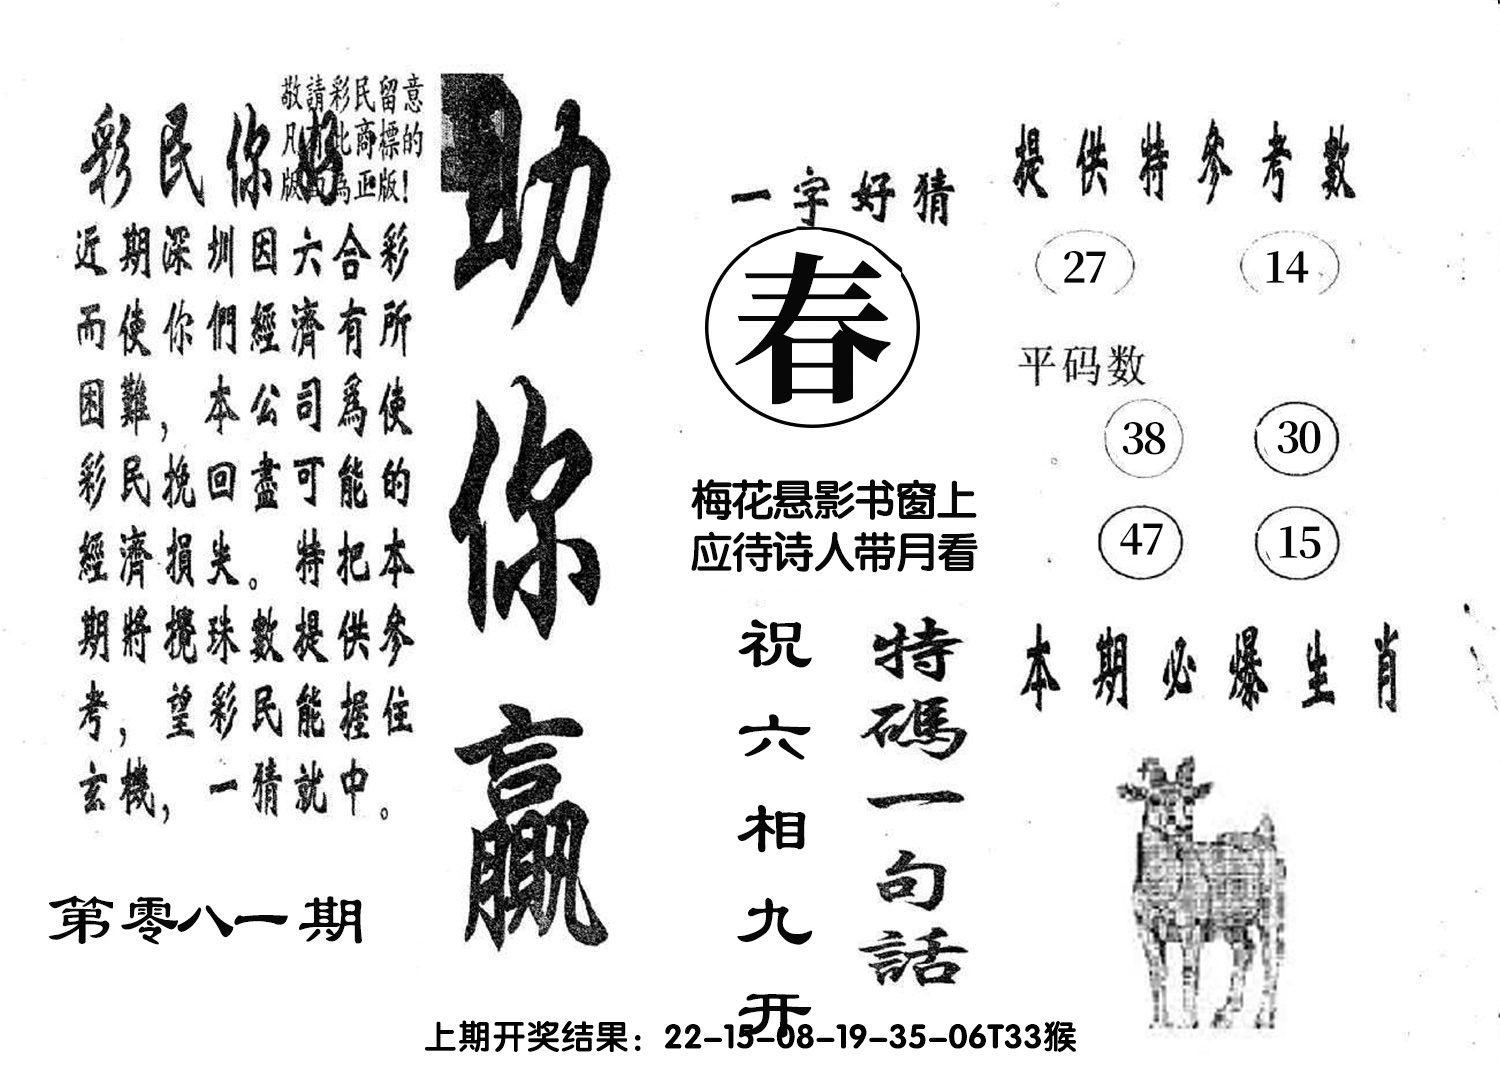 敬請彩民留意
凡有此商標的
版面為正版!
彩民你好
近期深圳因六合彩
而使你們經濟有所
困難，本公司爲使
彩民挽回盡可能的
經濟損失。特把本
期將攪珠數提供參
考，望彩民能握住
玄機，一猜就中。
第零八一期
助你贏
一字好猜
春
梅花悬影书窗上
应待诗人带月看
特碼一句話
祝六相九开
提供特參考數
27 14
平码数
38 30
47 15
本期必爆生肖
上期开奖结果：22-15-08-19-35-06T33猴